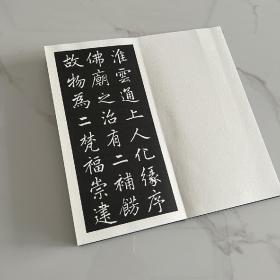 淮雲通上人化緣序
佛廟之治有二補餝
故物為二梵福崇建